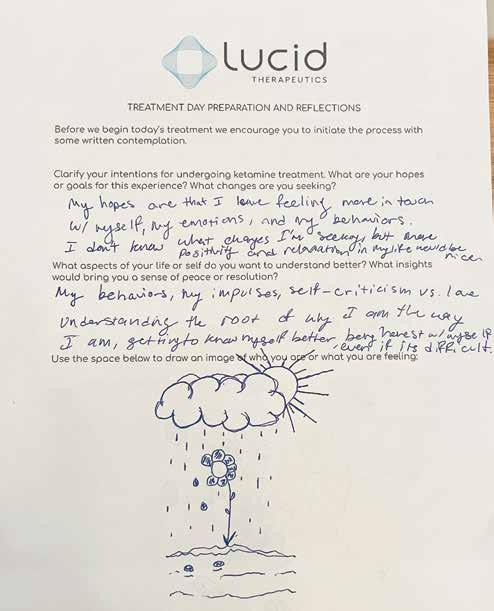 Lucid
THERAPEUTICS
TREATMENT DAY PREPARATION AND REFLECTIONS
Before we begin today's treatment we encourage you to initiate the process with
some written contemplation.
Clarify your intentions for undergoing ketamine treatment. What are your hopes
or goals for this experience? What changes are you seeking?
My hopes are that I leave feeling more in touch
w/ myself, my emotions, and my behaviors.
I don't know what changes I'm seeking, but more
positivity and relaxation in my life would be
nice.
What aspects of your life or self do you want to understand better? What insights
would bring you a sense of peace or resolution?
My behaviors, my impulses, self-criticism vs. love
understanding the root of why I am the way
I am, getting to know myself better, being honest w/ myself
even if its difficult.
Use the space below to draw an image of who you are or what you are feeling: